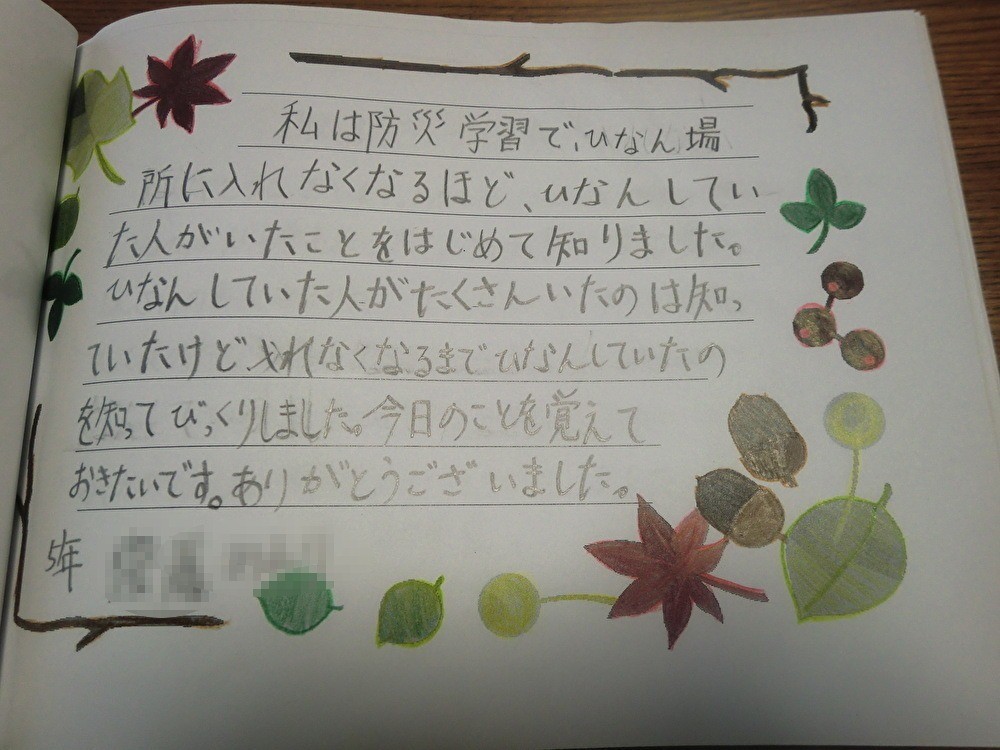 私は防災学習で、ひなん場
所に入れなくなるほど、ひなんしてい
た人がいたことをはじめて知りました。
ひなんしていた人がたくさんいたのは知っ
ていたけど入れなくなるまでひなんしていたの
を知ってびっくりしました。今日のことを覚えて
おきたいです。ありがとうございました。
5年